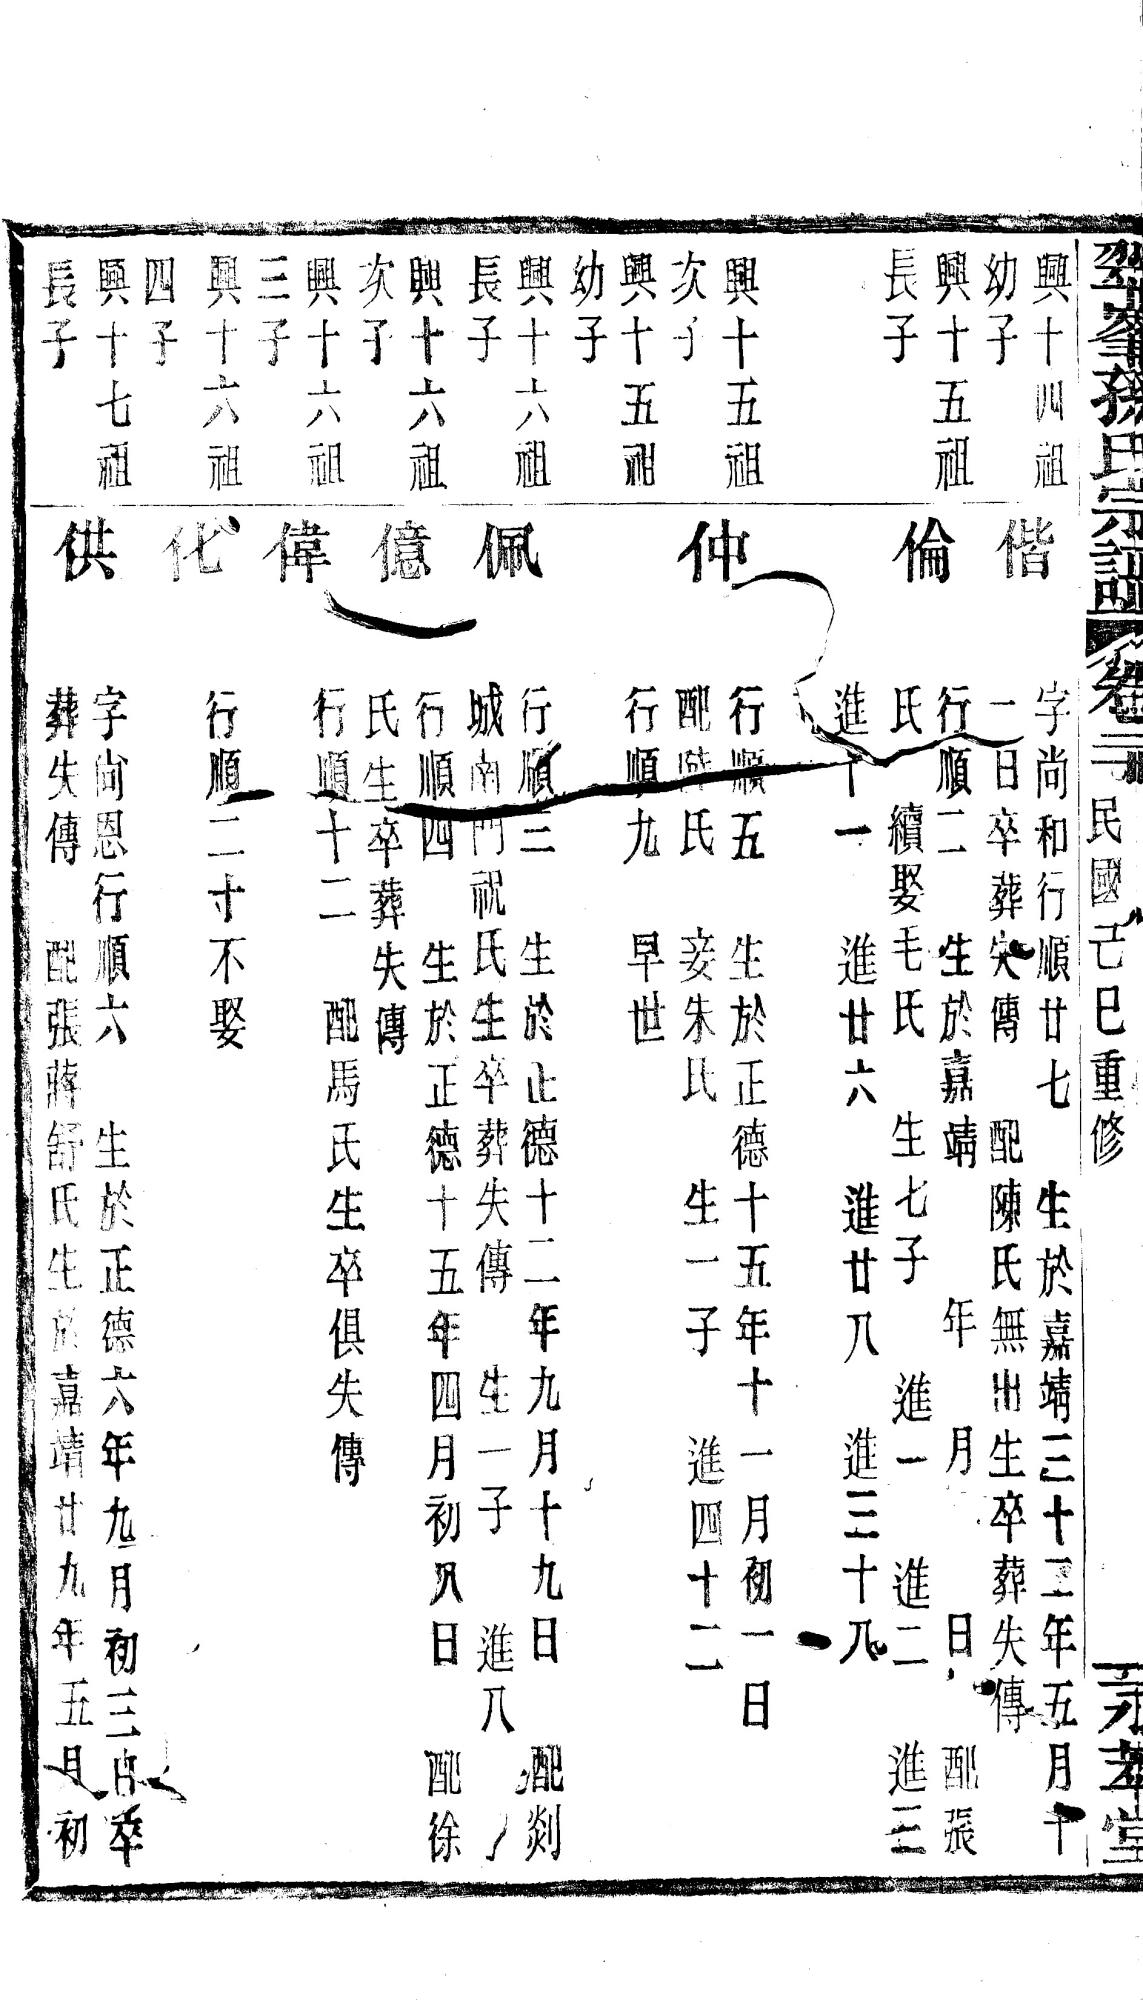 孫氏宗譜 卷二 民國己巳重修 永萃堂
興十四祖
幼子
偕
字尚和行順廿七 生於嘉靖三十三年五月十
一日卒葬失傳 配陳氏無出生卒葬失傳
興十五祖
長子
倫
行順二 生於嘉靖 年 月 日 配張
氏 續娶毛氏 生七子 進一 進二 進三
進十一 進廿六 進廿八 進三十八
興十五祖
次子
仲
行順五 生於正德十五年十一月初一日
配 氏 妾朱氏 生一子 進四十二
興十五祖
幼子
行順九 早世
興十六祖
長子
佩
行順三 生於正德十二年九月十九日 配剡
城南門祝氏生卒葬失傳 生一子 進八
興十六祖
次子
億
行順四 生於正德十五年四月初八日 配徐
氏生卒葬失傳
興十六祖
三子
偉
行順十二 配馬氏生卒俱失傳
興十六祖
四子
化
行順二十不娶
興十七祖
長子
供
字尚恩行順六 生於正德六年九月初三日卒
葬失傳 配張蔣舒氏生於嘉靖廿九年五月初